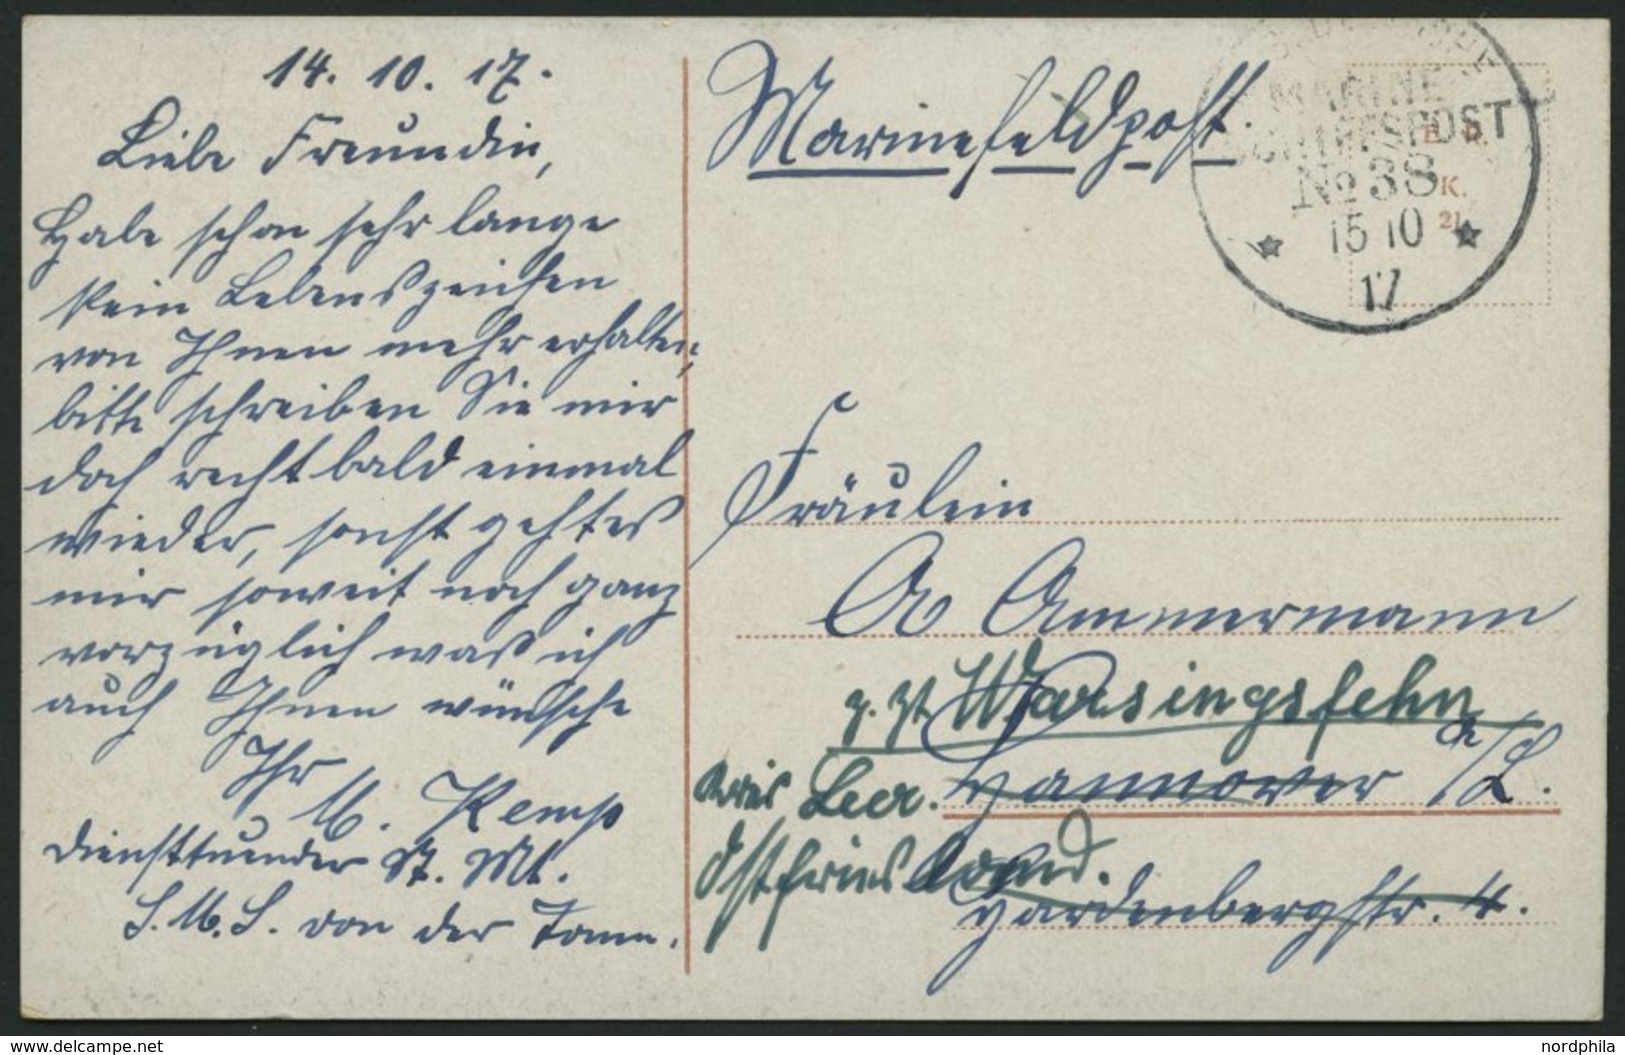 14. 10. 17.
Liebe Freundin,
Habe schon sehr lange
kein Lebenszeichen
von Ihnen mehr erhalten,
bitte schreiben Sie mir
doch recht bald einmal
wieder, sonst geht es
mir soweit noch ganz
vorzüglich was ich
auch Ihnen wünsche
Ihr
M. Kemp
diensttuender
S.M.S. von der Tann.
Marinefeldpost.
MARINE
SCHIFFSPOST
No 38
15 10
17
K.
21
Fräulein
A Ammermann
z. Zt Warsingsfehn
Kreis Leer. Hannover
Ostfriesland.
Hardenbergstr. 4.
www.delcampe.com
nordphila